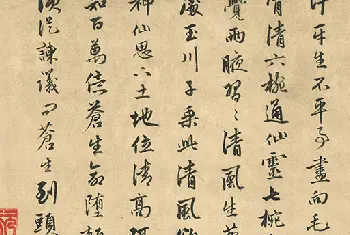 汗平生不平事盡向毛
骨清六椀通仙靈七椀
覺兩腋習〻清風生
處玉川子乘此清風欲
神仙司下土地位清高
知百萬億蒼生命墮
從諫議問蒼生到頭